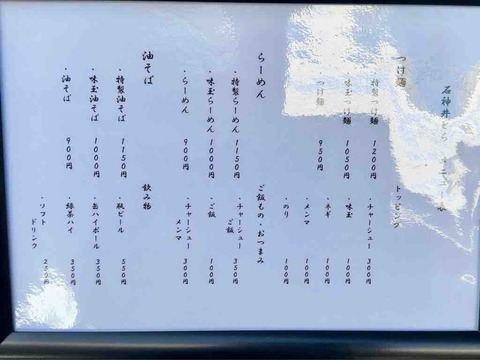 石神井
つけ麺
特製つけ麺 1200円
味玉つけ麺 1050円
つけ麺 950円
らーめん
・特製らーめん 1150円
・味玉らーめん 1000円
・らーめん 900円
油そば
・特製油そば 1150円
・味玉油そば 1000円
・油そば 900円
トッピング
・チャーシュー 300円
・味玉 100円
・ネギ 100円
・メンマ 100円
・のり 100円
ご飯もの・おつまみ
・チャーシュー
ご飯 350円
・ご飯 100円
・チャーシュー
メンマ 300円
飲み物
・瓶ビール 550円
・缶ハイボール 350円
緑茶ハイ 350円
・ソフト
ドリンク 250円